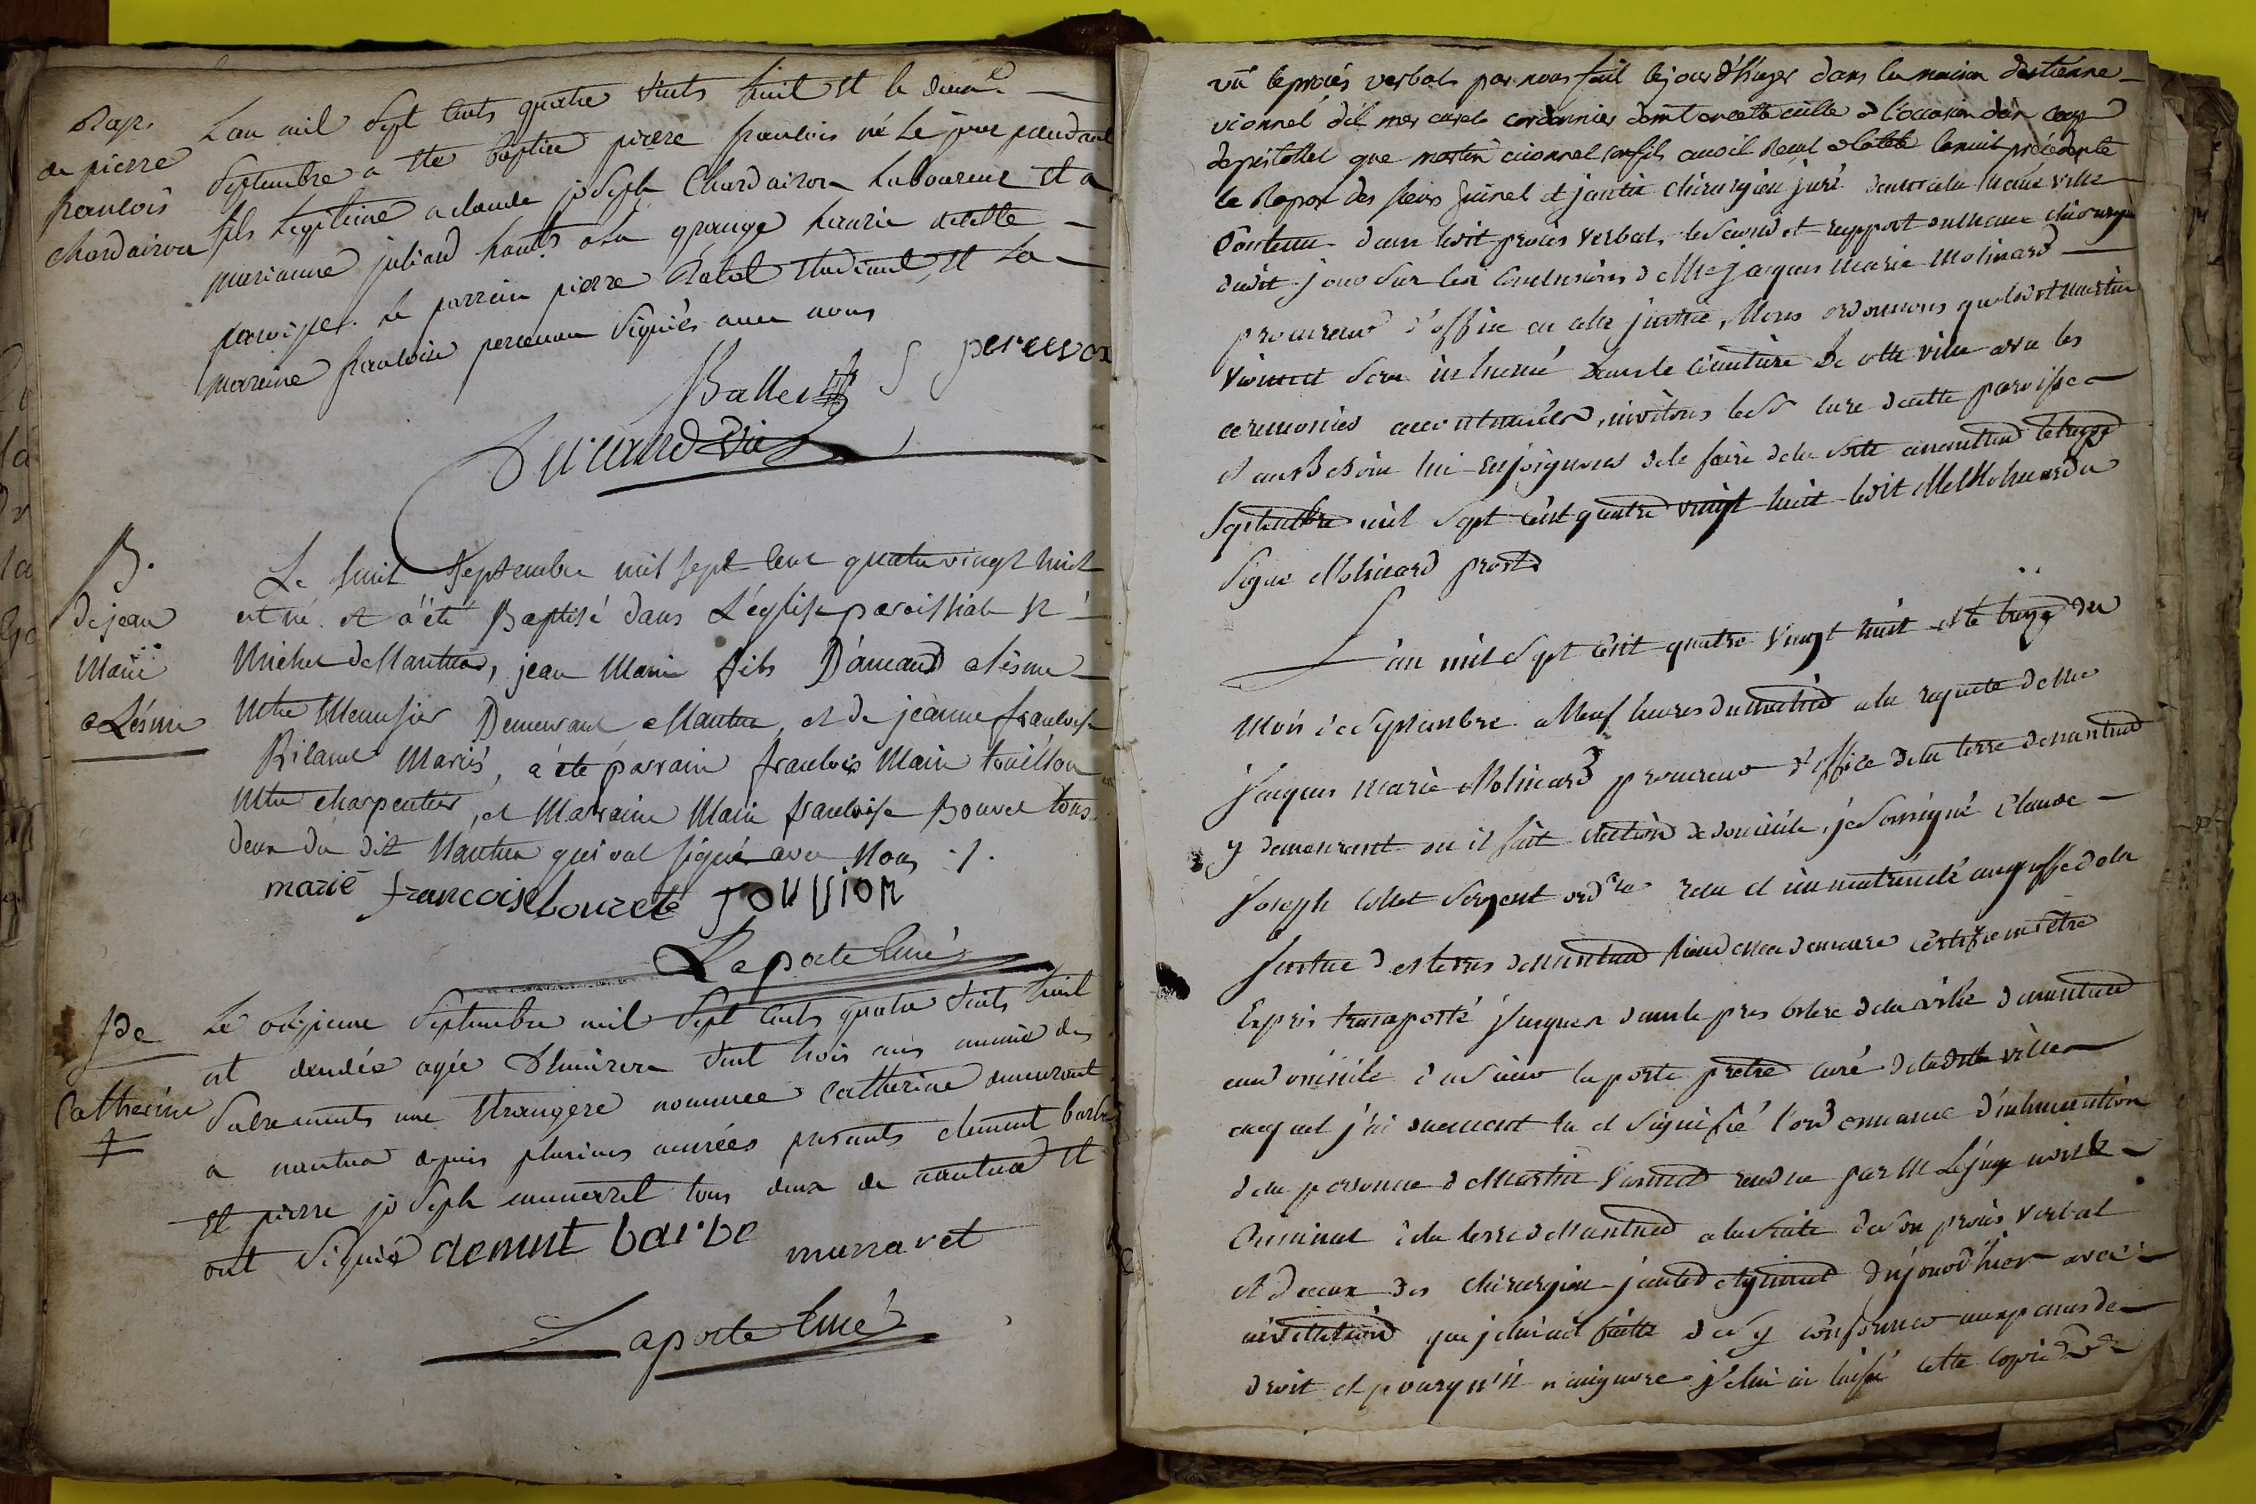 Bap.
de pierre
francois
Chardairon
Lan mil Sept Cents quatre vints huit et le deux
Septembre a ete baptise pierre francois né le jour precedant
fils legitime a claude joseph Chardairon Laboureur et a
marianne juliard hants a la grange
paroisse. Le parrein pierre etudiant et La
mareine francoise percevau Signés avec nous
Ballet f percevau
B.
de jean
Marie
alésme
Le huit Septembre mil sept cent quatre vingt huit
est né et a été Baptisé dans L'église paroissiale St
Michel de Nantua, jean Marie fils D'amand alésme
Mtre Menusier Demeurant a Nantua, et de jeanne francoise
Mariés, a été parrain francois Marie touillon
Mtre charpentier, et Marraine Marie francoise Bouvet tous
deux du dit Nantua qui ont signé avec Nous ./.
marie francoise bouvete Toullion
Laporte Curé
f de
Catherine
+
Le onzieme Septembre mil Sept Cents quatre vints huit
est decedée agée d'environ vint trois ans munie des
Sacrements une etrangere nommée Catherine demeurant
a nantua depuis plusieurs années presents clement barbe
et pierre joseph tous deux de nantua et
ont Signés clemint barbe
Laporte Curé
vû le procès verbal par nous fait le jour d'hier dans la maison d'estienne
vionnet dit cordonnier demt en cette ville a l'occasion d'un coup
de pistollet que martin vionnet son fils avoit Receu a la tete la nuit précédente
le Raport des sieurs et jantet chirurgien juré dans cette meme ville
Contenu dans ledit procès verbal, le Second rapport du meme chirurgien
dudit jour Sur les Conclusions de Me jacques Marie Molinard
procureur d'office en cette justice, Nous ordonnons que ledit Martin
Vionnet Sera inhumé dans le cimetiere de cette ville avec les
ceremonies accoutumées, invitons le Sr Curé de cette paroisse
et au besoin lui enjoignons de le faire de la sorte a nantua le treize
Septembre mil Sept Cent quatre vingt huit ledit Me Molinard a
Signé Molinard prost
L'an mil Sept Cent quatre Vingt huit et le treize du
Mois de Septembre a Neuf heures du matin a la requete de Me
Jacques Marie Molinard procureur d'office de la terre de nantua
y demeurant ou il fait élection de domicile, je Soussigné Claude
Joseph Collet Sergent ordre recu et immatriculé au greffe de la
Justice des terres de Nantua demeure Certifie m'etre
Exprés transporté jusques dans le presbitere de la ville de nantua
au domicile du Sieur laporte pretre curé de la ditte ville
auquel j'ai lu et Signifié l'ordonnance d'inhumation
de la personne de Martin Vionnet rendue par M Le juge
Criminel de la terre de Nantua a la Suite de Son procès Verbal
et de ceux des Chirurgien jantet et du jour d'hier avec
invitation que je lui ai faitte de s'y conformer aux peines de
droit et pour qu'il n'en ignore je lui ai laissé cette Copie